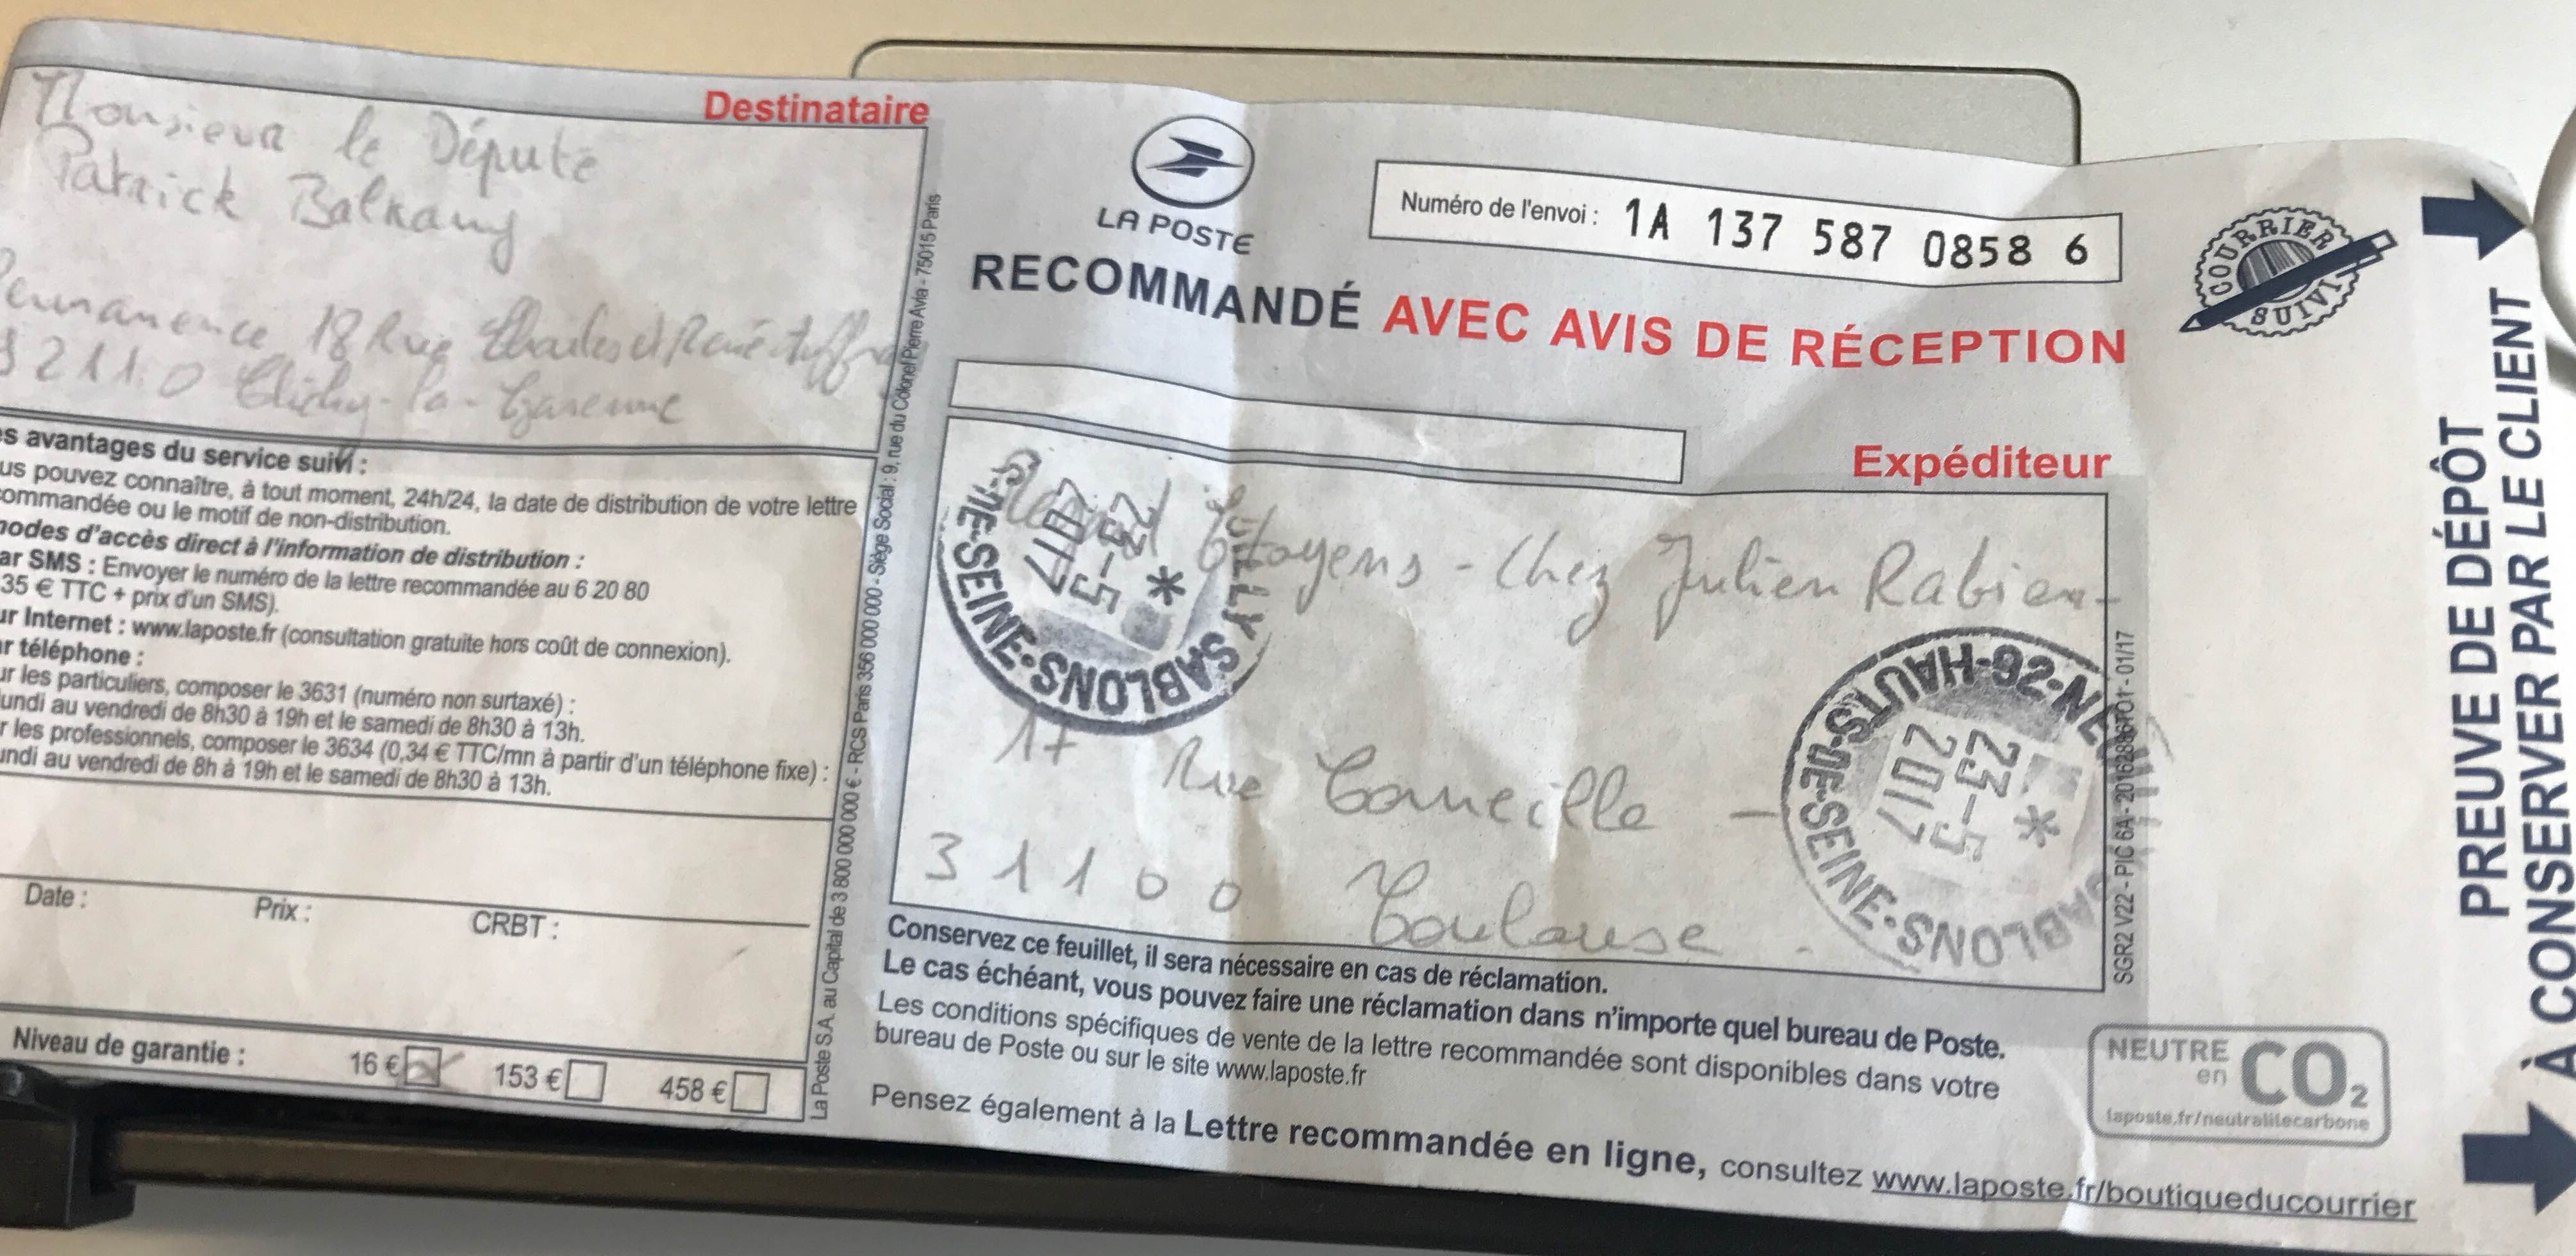 Destinataire
Monsieur le Député
Patrick Balkany
Permanence 18 Rue Charles et René
92110 Clichy-la-Garenne
es avantages du service suivi :
us pouvez connaître, à tout moment, 24h/24, la date de distribution de votre lettre
commandée ou le motif de non-distribution.
modes d'accès direct à l'information de distribution :
ar SMS : Envoyer le numéro de la lettre recommandée au 6 20 80
35 € TTC + prix d'un SMS).
ur Internet : www.laposte.fr (consultation gratuite hors coût de connexion).
ar téléphone :
ur les particuliers, composer le 3631 (numéro non surtaxé) :
lundi au vendredi de 8h30 à 19h et le samedi de 8h30 à 13h.
r les professionnels, composer le 3634 (0,34 € TTC/mn à partir d'un téléphone fixe) :
undi au vendredi de 8h à 19h et le samedi de 8h30 à 13h.
Date : Prix : CRBT :
Niveau de garantie : 16 € 153 € 458 €
La Poste S.A. au Capital de 3 800 000 000 € - RCS Paris 356 000 000 - Siège Social : 9, rue du Colonel Pierre Avia - 75015 Paris
LA POSTE
Numéro de l'envoi : 1A 137 587 0858 6
RECOMMANDÉ AVEC AVIS DE RÉCEPTION
COURRIER SUIVI
Expéditeur
Regards Citoyens - Chez Julien Rabier
17 Rue Corneille -
31100 Toulouse
S-DE-SEINE-SABLONS
23-5
2017
*
92-HAUTS-DE-SEINE-SABLONS
23-5
2017
*
SGR2 V22 - PIC 6A -
01/17
Conservez ce feuillet, il sera nécessaire en cas de réclamation.
Le cas échéant, vous pouvez faire une réclamation dans n'importe quel bureau de Poste.
Les conditions spécifiques de vente de la lettre recommandée sont disponibles dans votre
bureau de Poste ou sur le site www.laposte.fr
Pensez également à la Lettre recommandée en ligne, consultez www.laposte.fr/boutiqueducourrier
NEUTRE
en
CO2
laposte.fr/neutralitecarbone
PREUVE DE DÉPÔT
À CONSERVER PAR LE CLIENT